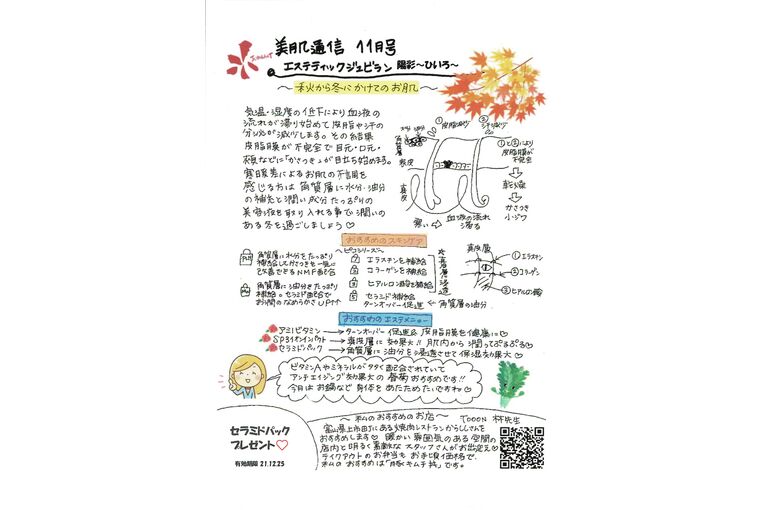 美肌通信 11月号
エステティックジュビラン 陽彩〜ひいろ〜
〜秋から冬にかけてのお肌〜
気温・湿度の低下により血液の
流れが滞り始めて皮脂や汗の
分泌が減少します。その結果
皮脂膜が不完全で目元・口元・
頬などに「かさつき」が目立ち始める。
寒暖差によるお肌の不調を
感じる方は角質層に水分・油分
の補給と潤い成分たっぷりの
美容液を取り入れる事で潤いの
ある冬を過ごしましょう♡
①皮脂減少
②汁減少
水分 油分
角質層
表皮
真皮
①と②により
皮脂膜が
不完全
乾燥
かさつき
小ジワ
寒い
血液の流れ
滞る
おすすめのスキンケア
〜ピコシリーズ〜
角質層に水分をたっぷり
補給してかさつきを一気に
改善できるNMF配合
角質層に油分をたっぷり
補給。セラミド配合で
お肌のなめらかさUP↑↑
エラスチンを補給
コラーゲンを補給
ヒアルロン酸を補給
セラミド補給
ターンオーバー促進
←角質層の油分
真皮層
①エラスチン
②コラーゲン
③ヒアルロン酸
おすすめのエステメニュー
アミノビタミン→ターンオーバー促進&皮脂膜を健康に♡
SP3イオンインパクト→真皮層に効果!!肌内から潤ってぷるぷる♡
セラミドパック→角質層に油分を浸透させて保湿効果大♡
ビタミンAやミネラルが多く配合されていて
アンチエイジング効果大の春菊おすすめです!!
今月はお鍋など身体をあたためたいですね♡
セラミドパック
プレゼント♡
有効期限 21.12.25
〜私のおすすめのお店〜
富山県上市町にある焼肉レストランからししさんを
おすすめします♡暖かい雰囲気のある空間の
店内と明るく素敵なスタッフさんがお出迎え♡
テイクアウトのお弁当もお手頃価格で、
私のおすすめは「豚キムチ丼」です。